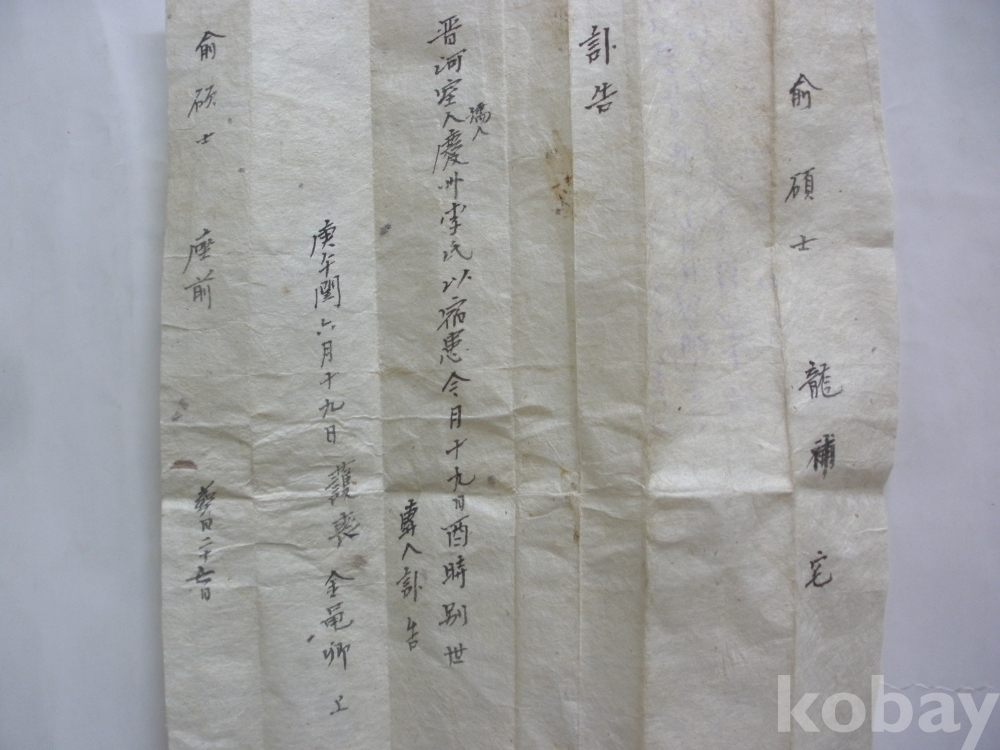 俞碩士 龍補 宅
訃告
晋河室人慶州李氏以宿患今月十九日酉時別世
孺人
專人訃告
庚午閏六月十九日 護喪 金 卿 上
俞碩士 座前
日二十七日
kobay